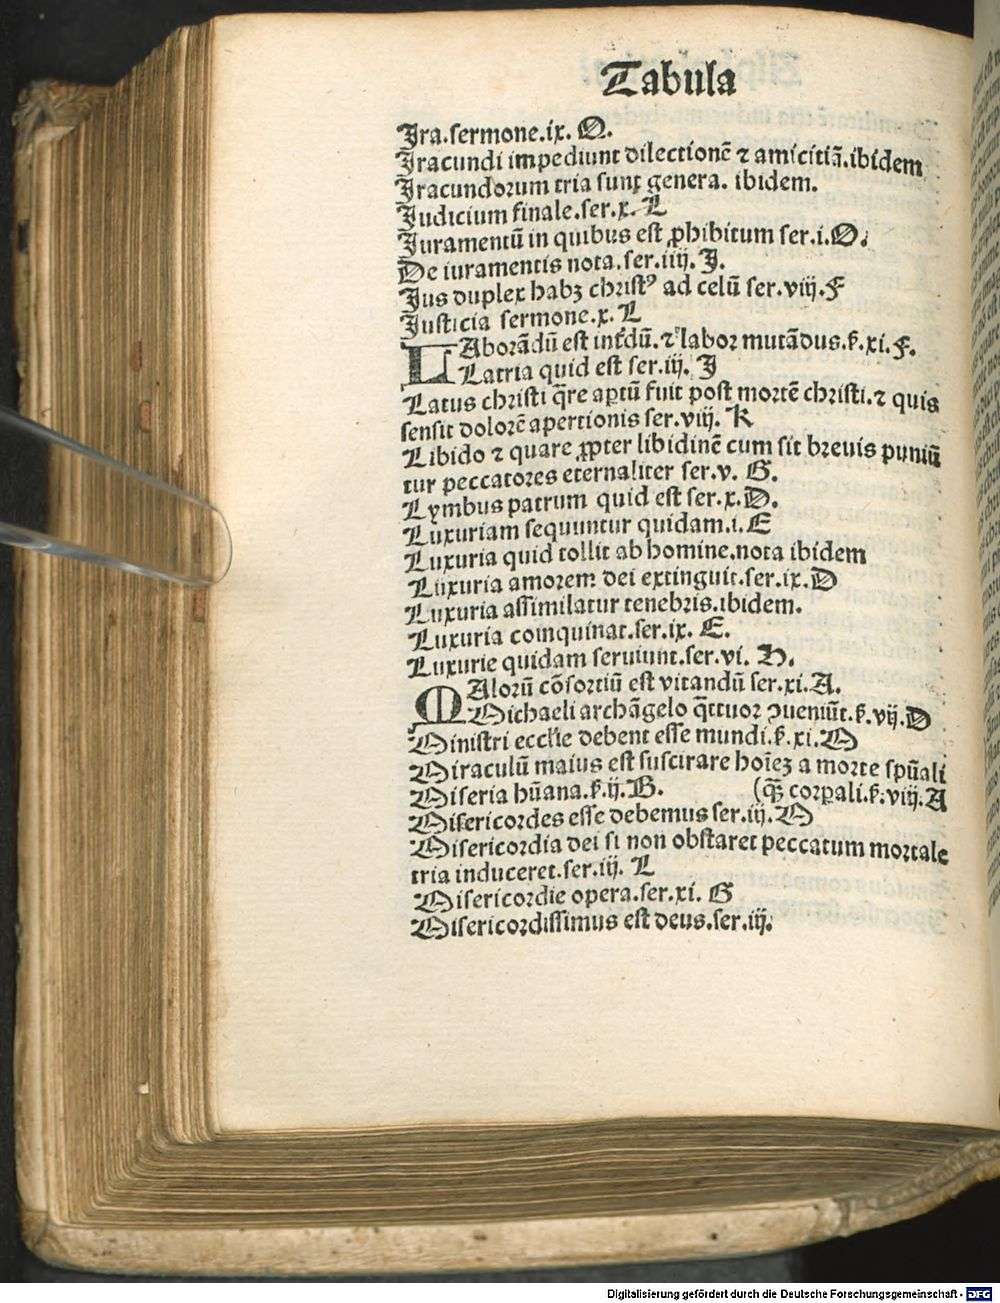 Tabula
Ira.sermone.ix. O.
Iracundi impediunt dilectionē ⁊ amicitiā.ibidem
Iracundorum tria sunt genera. ibidem.
Iudicium finale.ser.x. L
Iuramentū in quibus est ꝓhibitum ser.i.O.
De iuramentis nota.ser.iiij. I.
Ius duplex habꝫ christꝰ ad celū ser.viij.F
Iusticia sermone.x. L
LAborādū est int̄dū.⁊ labor mutādus.ẜ.xi.F.
Latria quid est ser.iij. I
Latus christi q̄re aꝑtū fuit post mortē christi.⁊ quis
sensit dolorē apertionis ser.viij. K
Libido ⁊ quare ꝓpter libidinē cum sit breuis puniū
tur peccatores eternaliter ser.v. G.
Lymbus patrum quid est ser.x.D.
Luxuriam sequuntur quidam.i.E
Luxuria quid tollit ab homine.nota ibidem
Luxuria amorem dei extinguit.ser.ix.D
Luxuria assimilatur tenebris.ibidem.
Luxuria coinquinat.ser.ix. E.
Luxurie quidam seruiunt.ser.vi. H.
MAlorū cōsortiū est vitandū ser.xi.A.
Michaeli archāgelo q̄ttuor ꝯueniūt.ẜ.vij.D
Ministri eccl'ie debent esse mundi.ẜ.xi.M
Miraculū maius est suscitare hoīeꝫ a morte spūali
Miseria hūana.ẜ.ij.B. (q̄ꝫ corꝑali.ẜ.viij.A
Misericordes esse debemus ser.iij.M
Misericordia dei si non obstaret peccatum mortale
tria induceret.ser.iij. L
Misericordie opera.ser.xi. G
Misericordissimus est deus.ser.iij.
Digitalisierung gefördert durch die Deutsche Forschungsgemeinschaft - DFG